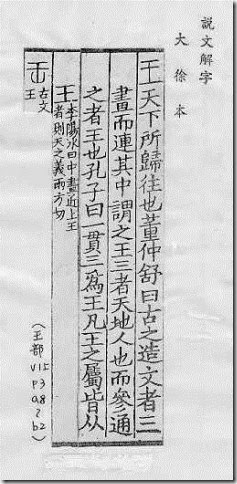 說文解字
大徐本
王天下所歸往也董仲舒曰古之造文者三
畫而連其中謂之王三者天地人也而參通
之者王也孔子曰一貫三爲王凡王之屬皆从
王
李陽冰曰中畫近上王
者則天之義雨方切
古文
王
(王部 V15 P3 a8~b2)